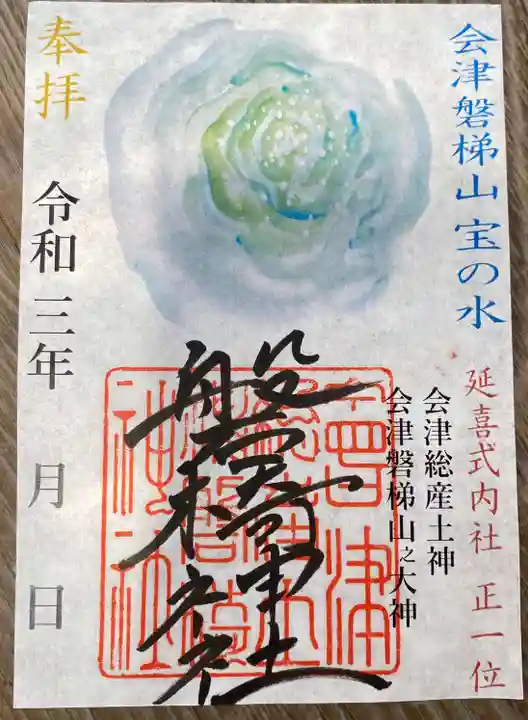 会津磐梯山 宝の水
延喜式内社 正一位
会津総産土神
会津磐梯山之大神
奉拝
令和三年 月 日